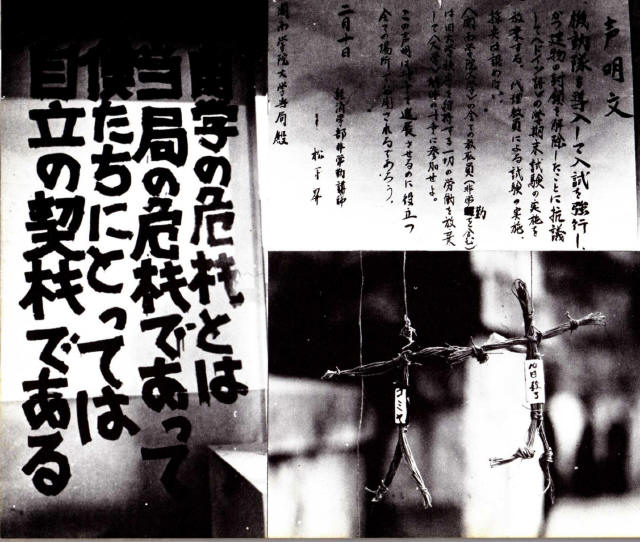 声明文
機動隊を導入して入試を強行し、
かつ建物の封鎖を解除したことに抗議
して、ドイツ語の学期末試験の実施を
放棄する。代理教員による試験の実施、
採点は認めない。
関西学院大学の全ての教職員(非常勤を含む)
は旧大学秩序を維持する一切の労働を放棄
して、の斗争に参加せよ。
この声明は斗争を進展させるのに役立つ
全ての場所に公開されるであろう。
二月十日
経済学部非常勤講師
松下昇
関西学院大学当局殿
関学の危機とは
当局の危機であって
僕たちにとっては
自立の契機である
コミヤ